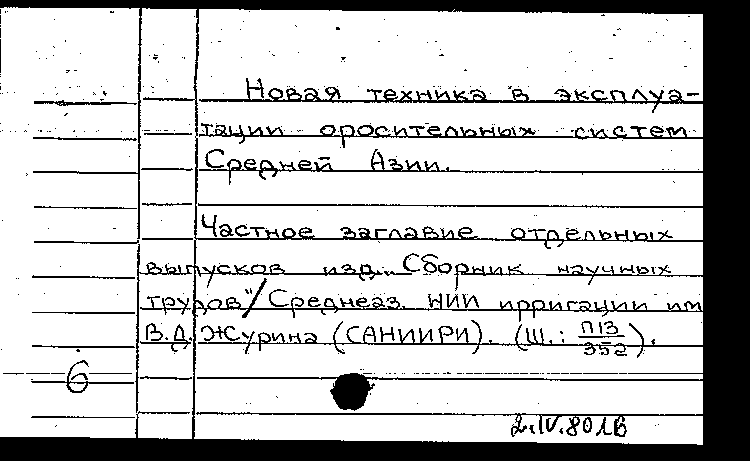 Новая техника в эксплуа-
тации оросительных систем
Средней Азии.
Частное заглавие отдельных
выпусков изд. „Сборник научных
трудов"/Среднеаз. НИИ ирригации им
В.Д. Журина (САНИИРИ). (Ш.: П13/352).
6
2.IV.80